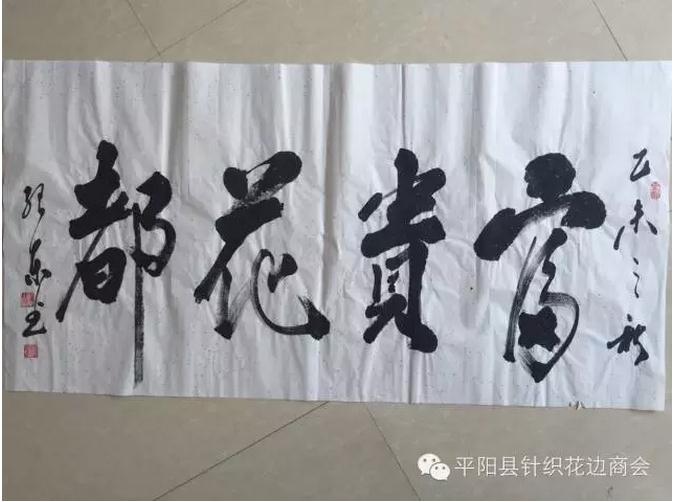 乙未之秋
富貴花都
平阳县针织花边商会